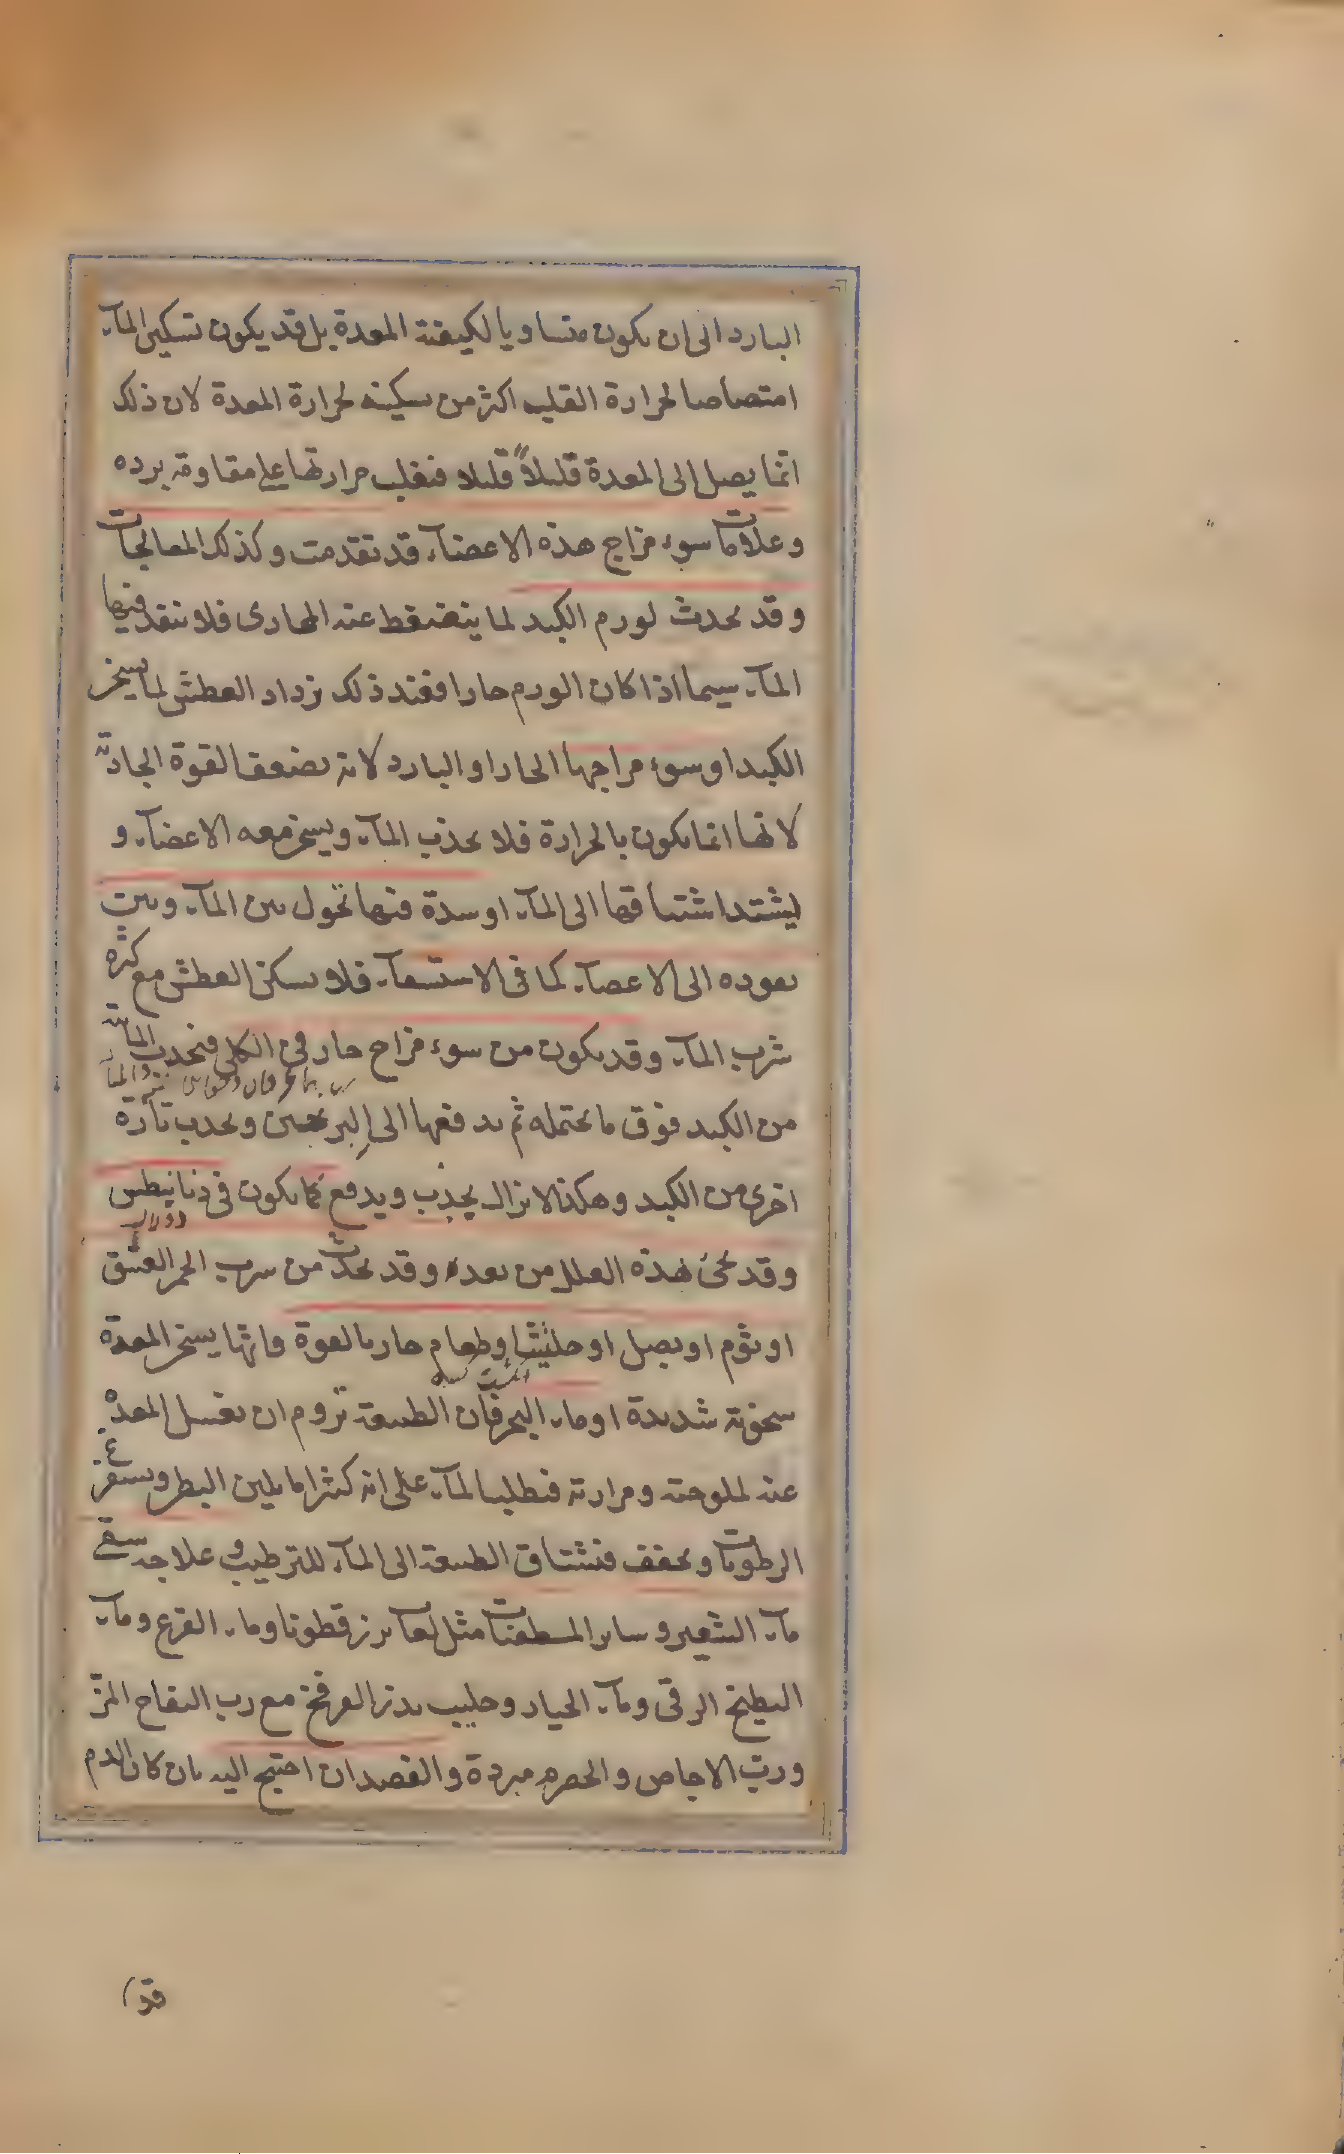 البارد الى ان يكون متساويا لكيفية المعدة بل قد يكون تسكين المآء
امتصاصا لحرارة القلب اكثر من تسكينه لحرارة المعدة لان ذلك
انما يصل الى المعدة قليلاً قليلا فتغلب حرارتها على مقاومة برده
وعلامات سوء مزاج هذه الاعضآء قد تقدمت وكذلك المعالجات
وقد يحدث لورم الكبد لما ينضغط عنه المجارى فلا ينفذ فيها
المآء سيما اذا كان الورم حارا فعند ذلك يزداد العطش لما يسخن
الكبد او سوء مزاجها الحار او البارد لانه يضعف القوة الجاذبة
لانها انما يكون بالحرارة فلا يجذب المآء ويسخن معه الاعضآء و
ليشتد اشتياقها الى المآء او سدة فيها تحول بين المآء وبين
نفوذه الى الاعضآء كما فى الاستسقآء فلا يسكن العطش مع كثرة
شرب المآء وقد يكون من سوء مزاج حار فى الكلى فيجذب المائية
من الكبد فوق ما يحتمله ثم يدفعها الى البربخين ويجذب تارة
اخرى من الكبد وهكذا لا يزال يجذب ويدفع كما يكون فى ذيانيطس
دولاب
وقد يجئ هذه العلل من بعده وقد يحدث من شرب الخمر العتيق
او ثوم او بصل او حلتيتا وطعام حار بالقوة فانها يسخن المعدة
سخونة شديدة او ماء البحر فان الطبيعة تروم ان تغسل المعدة
عنه لملوحته ومرارته فيطلب المآء على انه كثيرا ما يلين البطن ويستفرغ
الرطوبات ويجفف فتشتاق الطبيعة الى المآء للترطيب وعلاجه سقى
مآء الشعير وساير المطفيات مثل لعاب بزرقطونا وماء القرع ومآء
البطيخ الرقى ومآء الخيار وحليب بذر الفرفخ مع رب التفاح المز
ورب الاجاص والحصرم مبردة والفصد ان احتيج اليه بان كان الدم
قد